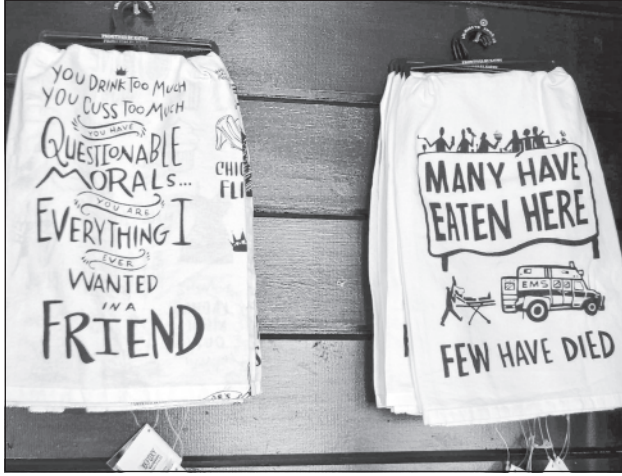 YOU DRINK TOO MUCH
YOU CUSS TOO MUCH
YOU HAVE
QUESTIONABLE
MORALS...
YOU ARE
EVERYTHING I
EVER
WANTED
IN A
FRIEND
CHIC
FLI
MANY HAVE
EATEN HERE
EMS
FEW HAVE DIED